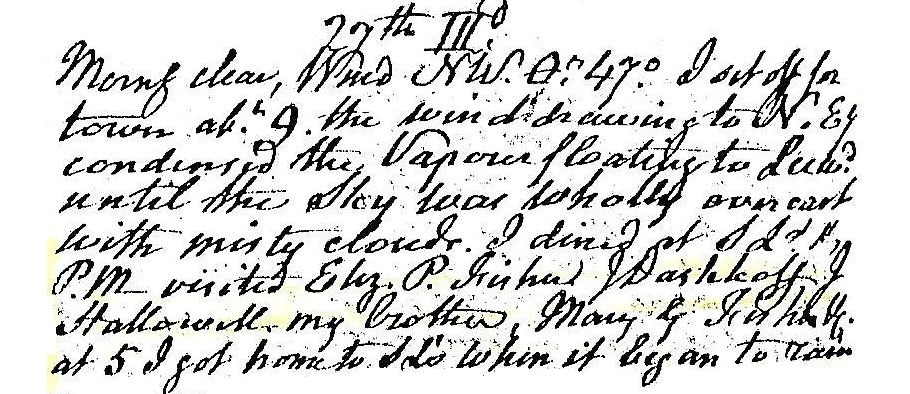 27th III.d
Morng clear, Wind NW. 47.° I set off for
town ab.t 9. the wind drawing to N. Ey
condensed the Vapour floating to Leewd.
until the Sky was wholly overcast
with misty clouds. I dined at
P.M. visited Eliz. P. Fisher J Dashkoff J
Hallowell. my brother, Mary G Fisher &c.
at 5 I got home to when it began to rain